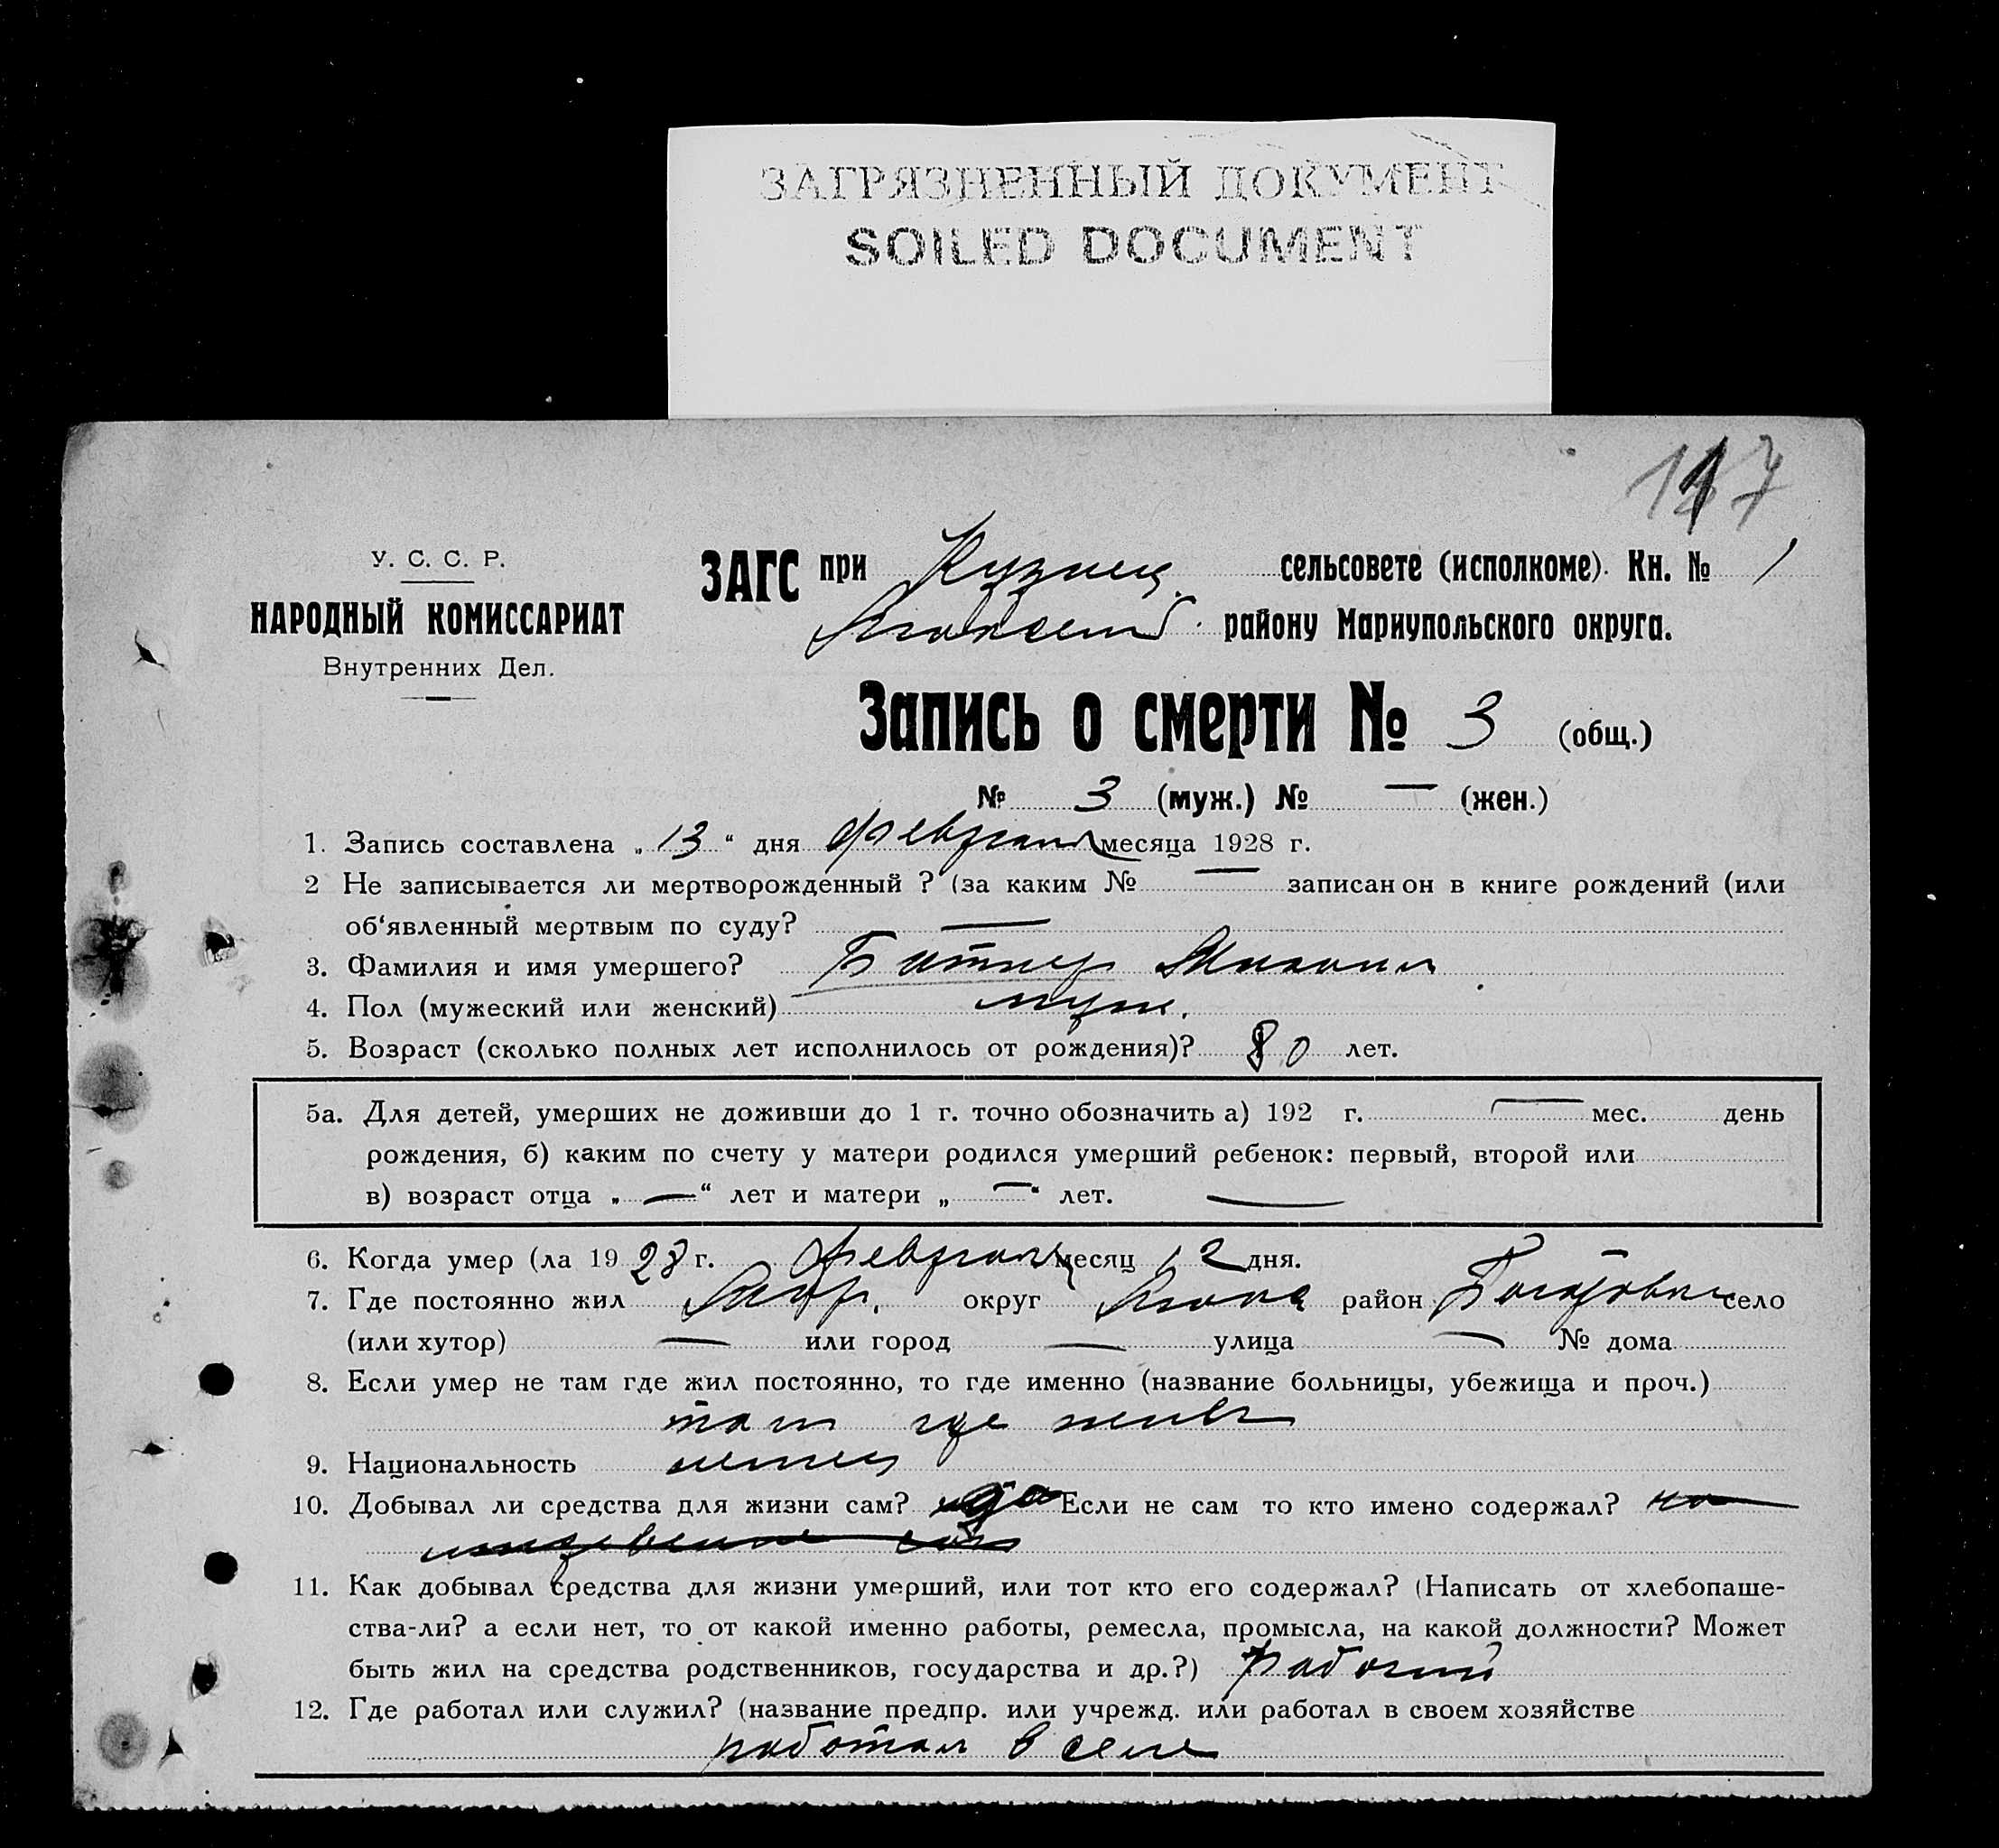 ЗАГРЯЗНЕННЫЙ ДОКУМЕНТ
SOILED DOCUMENT
У. С. С. Р.
НАРОДНЫЙ КОМИССАРИАТ
Внутренних Дел.
ЗАГС при Кузнец. сельсовете (исполкоме). Кн. № 1
району Мариупольского округа.
Запись о смерти № 3 (общ.)
№ 3 (муж.) № — (жен.)
1. Запись составлена „13“ дня февраля месяца 1928 г.
2 Не записывается ли мертворожденный ? (за каким № — записан он в книге рождений (или
об‘явленный мертвым по суду? —
3. Фамилия и имя умершего? Битнер Михаил
4. Пол (мужеский или женский) муж.
5. Возраст (сколько полных лет исполнилось от рождения)? 80 лет.
5а. Для детей, умерших не доживши до 1 г. точно обозначить а) 192 г. — мес. день
рождения, б) каким по счету у матери родился умерший ребенок: первый, второй или
в) возраст отца „—“ лет и матери „—“ лет. —
6. Когда умер (ла 1928 г. февраля месяц 12 дня.
7. Где постоянно жил Мар. округ район село
(или хутор) — или город — улица — № дома
8. Если умер не там где жил постоянно, то где именно (название больницы, убежища и проч.)
там где жил
9. Национальность немец
10. Добывал ли средства для жизни сам? да Если не сам то кто имено содержал? на
иждевении
11. Как добывал средства для жизни умерший, или тот кто его содержал? (Написать от хлебопаше-
ства-ли? а если нет, то от какой именно работы, ремесла, промысла, на какой должности? Может
быть жил на средства родственников, государства и др.?) рабочий
12. Где работал или служил? (название предпр. или учрежд. или работал в своем хозяйстве
работал в селе